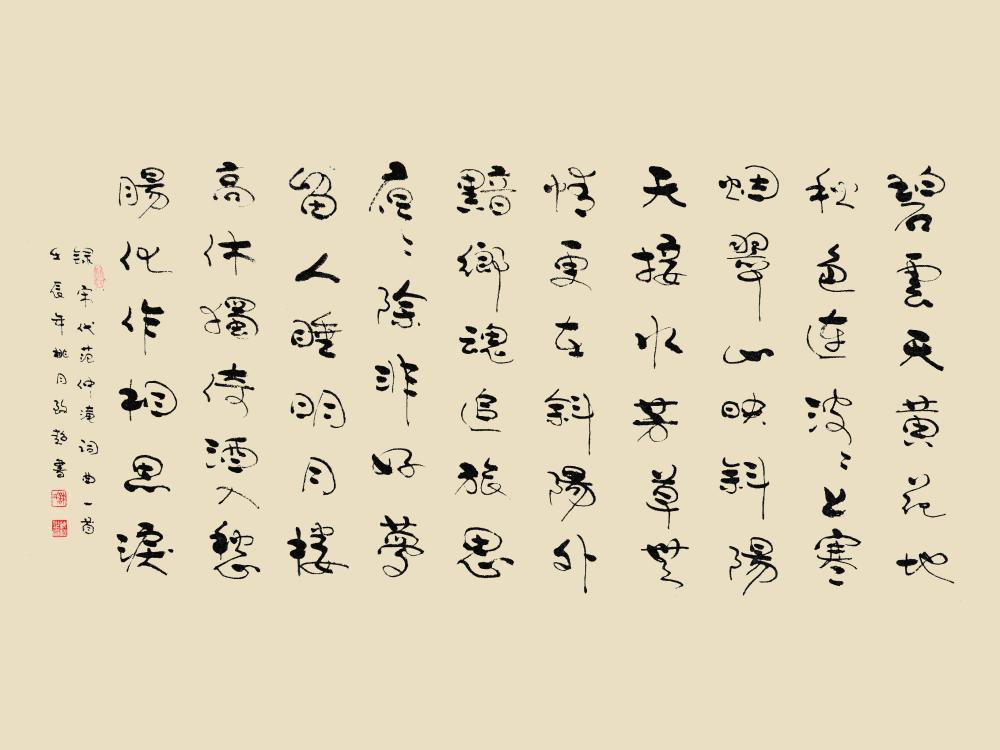 碧雲天黄花地
秋色連波〻上寒
烟翠山映斜陽
天接水芳草無
情更在斜陽外
黯鄉魂追旅思
夜〻除非好夢
留人睡明月樓
高休獨倚酒入愁
腸化作相思淚
録宋代范仲淹詞曲一首
壬辰年桃月書